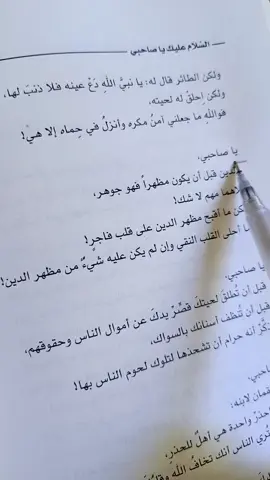 السّلام عليك يا صاحبي
ولكن الطائر قال له: يا نبيَّ اللهِ دَعْ عينه فلا ذنبَ لها،
ولكن اِحلقْ له لحيته،
فواللهِ ما جعلني آمنُ مكره وأنزلُ في حِماه إلا هيَ!
يا صاحبي،
الدين قبل أن يكون مظهراً فهو جوهر،
كلاهما مهم لا شك!
لكن ما أقبح مظهر الدين على قلب فاجرٍ!
ما أحلى القلب النقي وإن لم يكن عليه شيءٌ من مظهر الدين!
يا صاحبي،
قبل أن تُطلقَ لحيتكَ قصِّرْ يدكَ عن أموال الناس وحقوقهم،
قبل أن تُنظف أسنانكَ بالسواك،
تذكَّرْ أنه حرام أن تشحذها لتلوك لحوم الناس بها!
صاحبي،
لقمان لابنه:
احذرْ واحدة هي أهلٌ للحذرِ،
تُري الناس أنك تخافُ الله